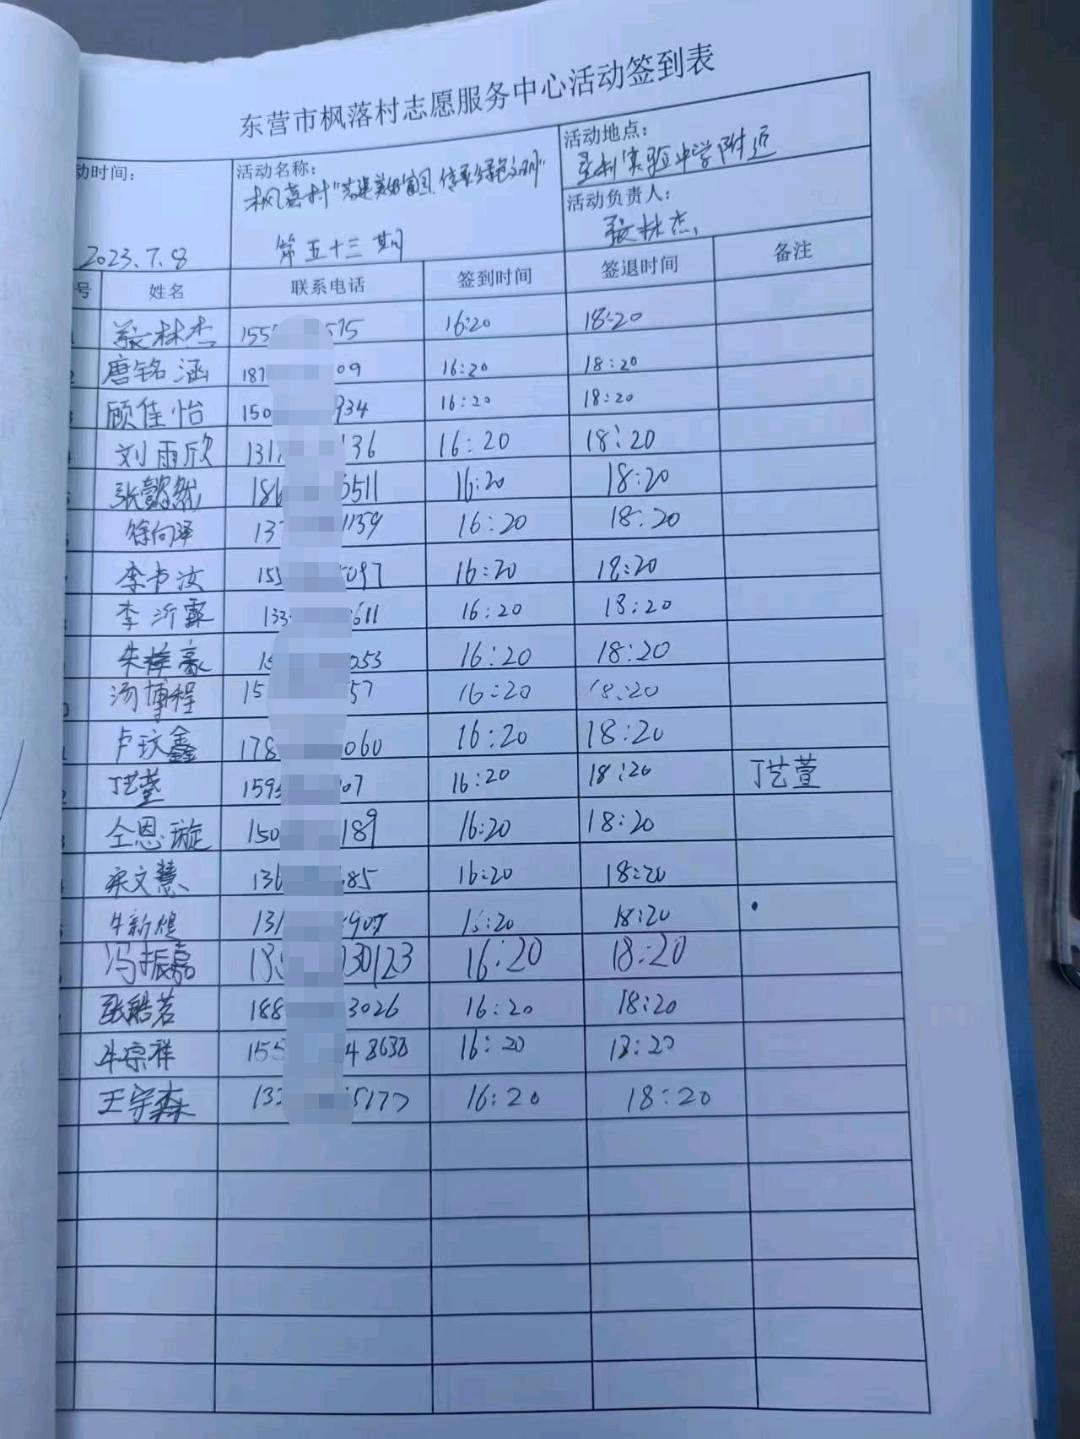 东营市枫落村志愿服务中心活动签到表
动时间: 活动名称: 活动地点:
枫落村"共建美好家园,传承绿色文明" 胜利实验中学附近
活动负责人:
2023.7.8 第五十三期 张林杰
号 姓名 联系电话 签到时间 签退时间 备注
张林杰 155 575 16:20 18:20
唐铭涵 187 09 16:20 18:20
顾佳怡 150 934 16:20 18:20
刘雨欣 131 136 16:20 18:20
张懿然 186 5511 16:20 18:20
徐向泽 137 1159 16:20 18:20
李书汝 155 5097 16:20 18:20
李沂霖 133 611 16:20 18:20
朱梓豪 15 053 16:20 18:20
汤博程 15 57 16:20 18:20
卢玟鑫 178 060 16:20 18:20
丁艺萱 159 07 16:20 18:20 丁艺萱
仝恩璇 150 189 16:20 18:20
宋文慧 136 85 16:20 18:20
牛新煜 131 907 16:20 18:20
冯振嘉 135 30123 16:20 18:20
张皓茗 188 3026 16:20 18:20
牛宗祥 155 48638 16:20 18:20
王宇森 132 5177 16:20 18:20